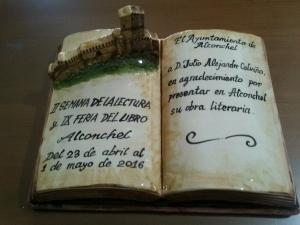 II SEMANA DE LA LECTURA
y IX FERIA DEL LIBRO
Alconchel
Del 23 de abril al
1 de mayo de 2016
El Ayuntamiento de
Alconchel
a D. Julio Alejandro Calviño,
en agradecimiento por
presentar en Alconchel
su obra literaria.